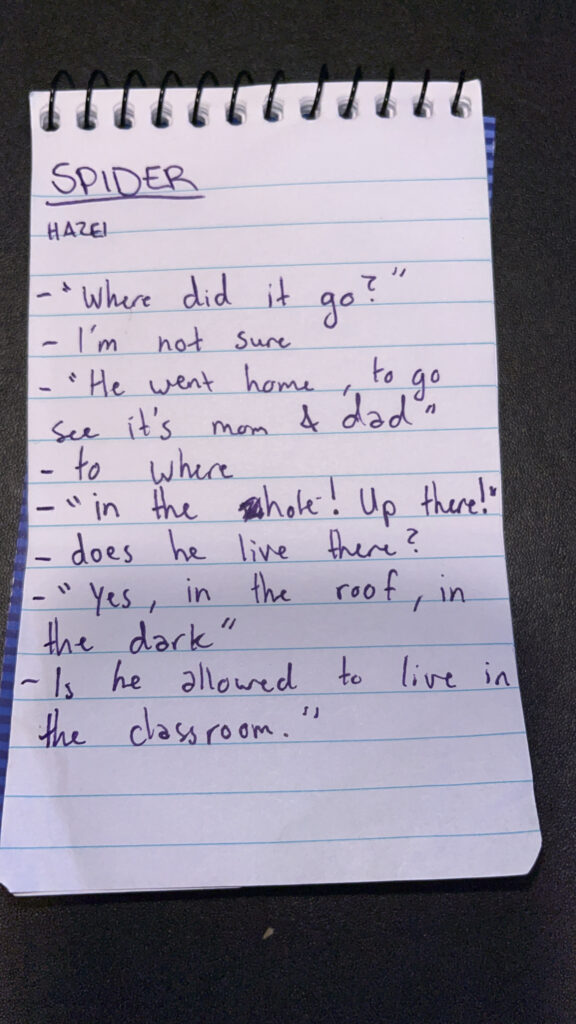 SPIDER
HAZEl
- "Where did it go?"
- I'm not sure
- "He went home, to go
see it's mom & dad"
- to where
- "in the hole! Up there!"
- does he live there?
- "Yes, in the roof, in
the dark"
- Is he allowed to live in
the classroom."